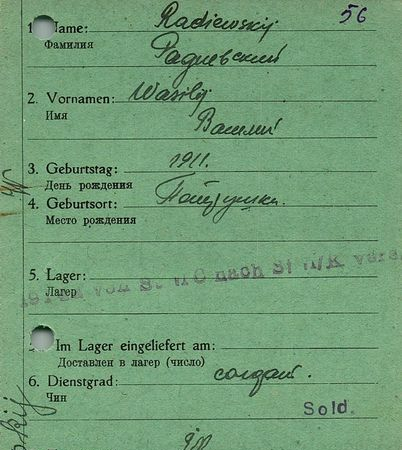 56
Name: Radiewskij
Фамилия Радиевский
2. Vornamen: Wasilij
Имя Василий
3. Geburtstag: 1911.
День рождения
4. Geburtsort:
Место рождения
5. Lager:
Лагер
nach
Im Lager eingeliefert am:
Доставлен в лагер (число)
6. Dienstgrad: солдат.
Чин
Sold.